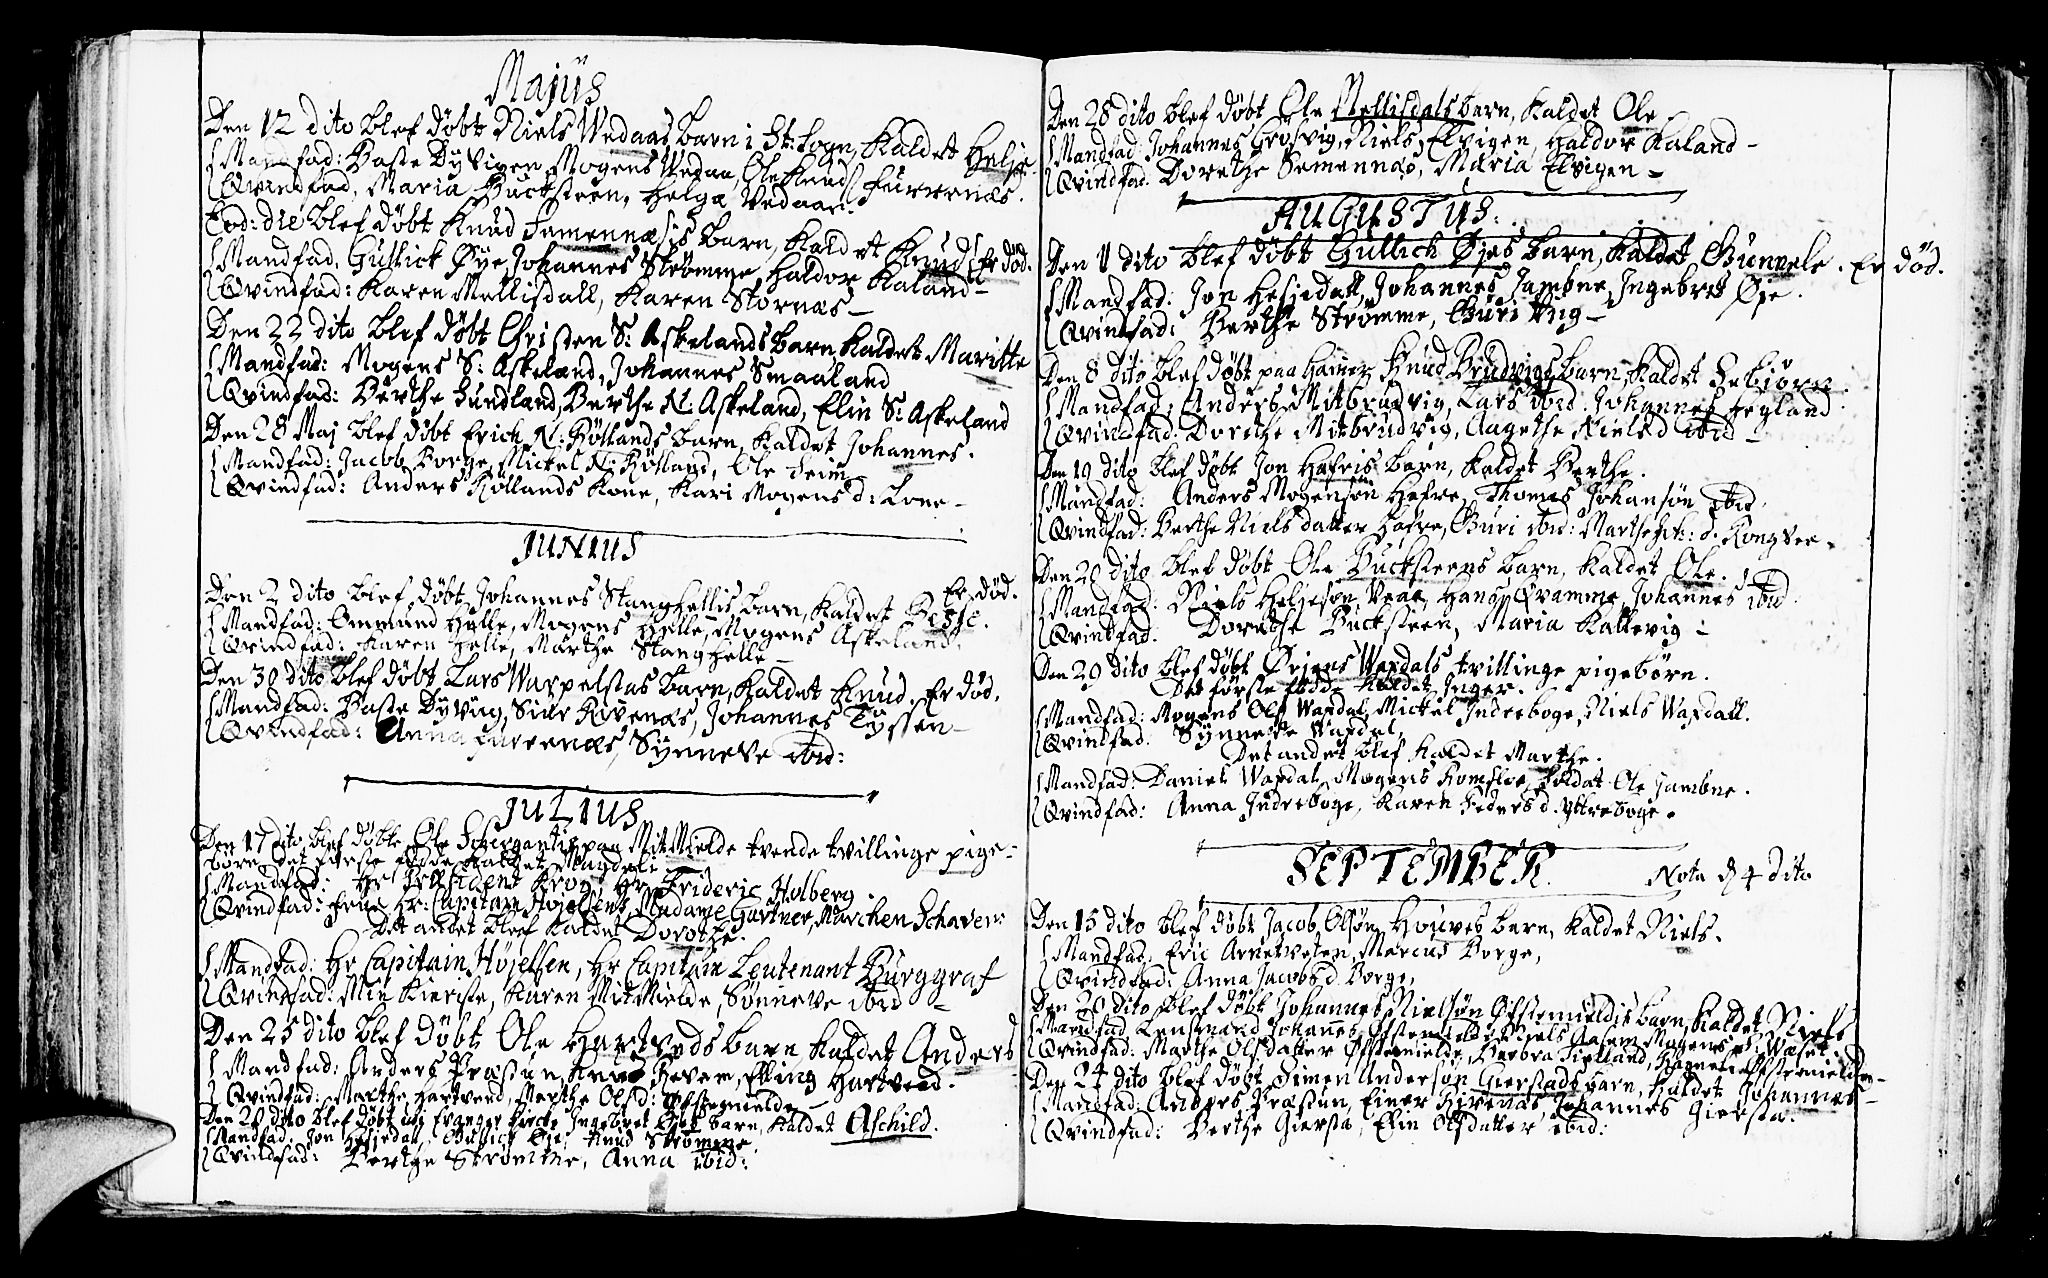 Majus
Den 12 dito blef døbt Niels Wedaas barn i St: Sogn, kaldet Helje
Mandfad: Baste Dyvigen, Mogens Vedaa, Ole Knuds Furrenæs.
Qvindfad, Maria Bucksteen, Helga Vedaa.
Eod: die blef døbt Knud Semennæsis barn, kaldet Knud Er død.
Mandfad, Gullick Øye, Johannes Strømme, Haldor Kaland-
Qvindfad: Karen Mellisdall, Karen Stornæs-
Den 22 dito blef døbt Christen S: Askelands barn kaldet Maritte
Mandfad: Mogens S: Askeland, Johannes Smaaland
Qvindfad: Berthe Sundland, Berthe N: Askeland, Elin S: Askeland
Den 28 Maj blef døbt Erich N: Røllands barn, kaldet Johannes.
Mandfad: Jacob Borge, Mickel N: Rølland, Ole Teim
Qvindfad: Anders Røllands Kone, Kari Mogens d: Lone-
JUNIUS
Den 2 dito blef døbt Johannes Stanghellis barn, kaldet Er død.
Mandfad: Ommund Hylle, Mogens Hylle, Mogens Askeland.
Qvindfad: Karen Helle, Marthe Stanghelle-
Den 30 dito blef døbt Lars Warpelstas barn, kaldet Knud. Er død.
Mandfad: Baste Dyving, Siur Rivenæs, Johannes Tyssen-
Qvindfad: Anna Furrenæs, Synneve ibid:
JULIUS
Den 17 dito blef døbt Ole paa MitMielde tvende tvillinge pige-
børn, det første fødde kaldet Magdeli
Mandfad: Hr Præsident Krog, Hr Frideric Holberg
Qvindfad: Frue Hr: Capitain Højelsens, Madame Gartner, Marchen Schaven:
Det andet bleef kaldet Dorothe.
Mandfad: Hr Capitain Højelsen, Hr Capitain Leutenant Burggraf
Qvindfad: Min Kierste, Karen MitMielde, Sønneve ibid-
Den 25 dito blef døbt Ole Hartveds barn kaldet Anders
Mandfad: Anders Præstun, Knud Revem, Elling Hartved.
Qvindfad: Marthe Hartved, Marthe Olsd: Øfstemielde
Den 28 dito blef døbt udj Evanger Kirke Ingebret Øjes barn, kaldet Aschild.
Mandfad: Jon Hesjedal, Gullick Øje, Knud Strømme
Qvindfad: Berthe Strømme, Anna ibid:
Den 28 dito blef døbt Ole Mellisdals barn, kaldet Ole.
Mandfad: Johannes Grosvig, Niels Elvigen, Haldor Kaland-
Qvindfad: Dorethe Semennæs, Maria Elvigen-
AUGUSTUS:
Den 1 dito blef døbt Gullich Øjes barn, kaldet Gunnele. Er død.
Mandfad: Jon Hesjedall, Johannes Jamne, Ingebret Øje.
Qvindfad: Berthe Strømme, Guri
Den 8 dito blef døbt paa Hammer Knud Brudvigs barn, kaldet Sebiørn.
Mandfad: Anders Mitbrudvig, Lars ibid. Johannes
Qvindfad: Dorethe Mitbrudvig, Aagethe Niels d ibid-
Den 19 dito blef døbt Jon Hafris barn, kaldet Berthe.
Mandfad: Anders Mogensøn Hafre, Thomas Johansøn ibid.
Qvindfad: Berthe Niels datter Hafre, Guri ibid: Marthe d. Kongsve.
Den 20 dito blef døbt Ole Bucksteens barn, kaldet Ole.
Mandfad: Niels Heljesøn Veaa, Hans Qvamme, Johannes ibid.
Qvindfad: Dorethe Bucksteen, Maria Kallevig-
Den 29 dito blef døbt Ørjens Waxdals tvillinge pigebørn.
Det første fødde kaldet Inger.
Mandfad: Mogens Ols Waxdal, Mickel Indreboge, Niels Waxdall.
Qvindfad: Synneve Waxdal,
Det andet blef kaldet Marthe.
Mandfad: Daniel Waxdal, Mogens Romsloe, Soldat Ole Jamne.
Qvindfad: Anna Indreboge, Karen Peders d. Yttreboge.
SEPTEMBER. Nota d 4 dito
Den 15 dito blef døbt Jacob Olsøn Houves barn, kaldet Niels.
Mandfad: Eric Arnetveten, Marcus Borge,
Qvindfad: Anna Jacobs d. Borge,
Den 20 dito blef døbt Johannes Nielsøn Øfstemieldis barn, kaldet Niels
Mandfad Lensmand Johannes Øfstemielde, Niels Aasem, Mogens
Qvindfad: Marthe Olsdatter Øfstemielde, Barbra Tielland, Magnelie Øfstemielde-
Den 24 dito blef døbt Simen Andersøn Gierstads barn, kaldet Johannes-
Mandfad: Anders Præstun, Einer Rivenæs, Johannes Giersta.
Qvindfad: Berthe Giersta, Elin Olsdatter ibid: